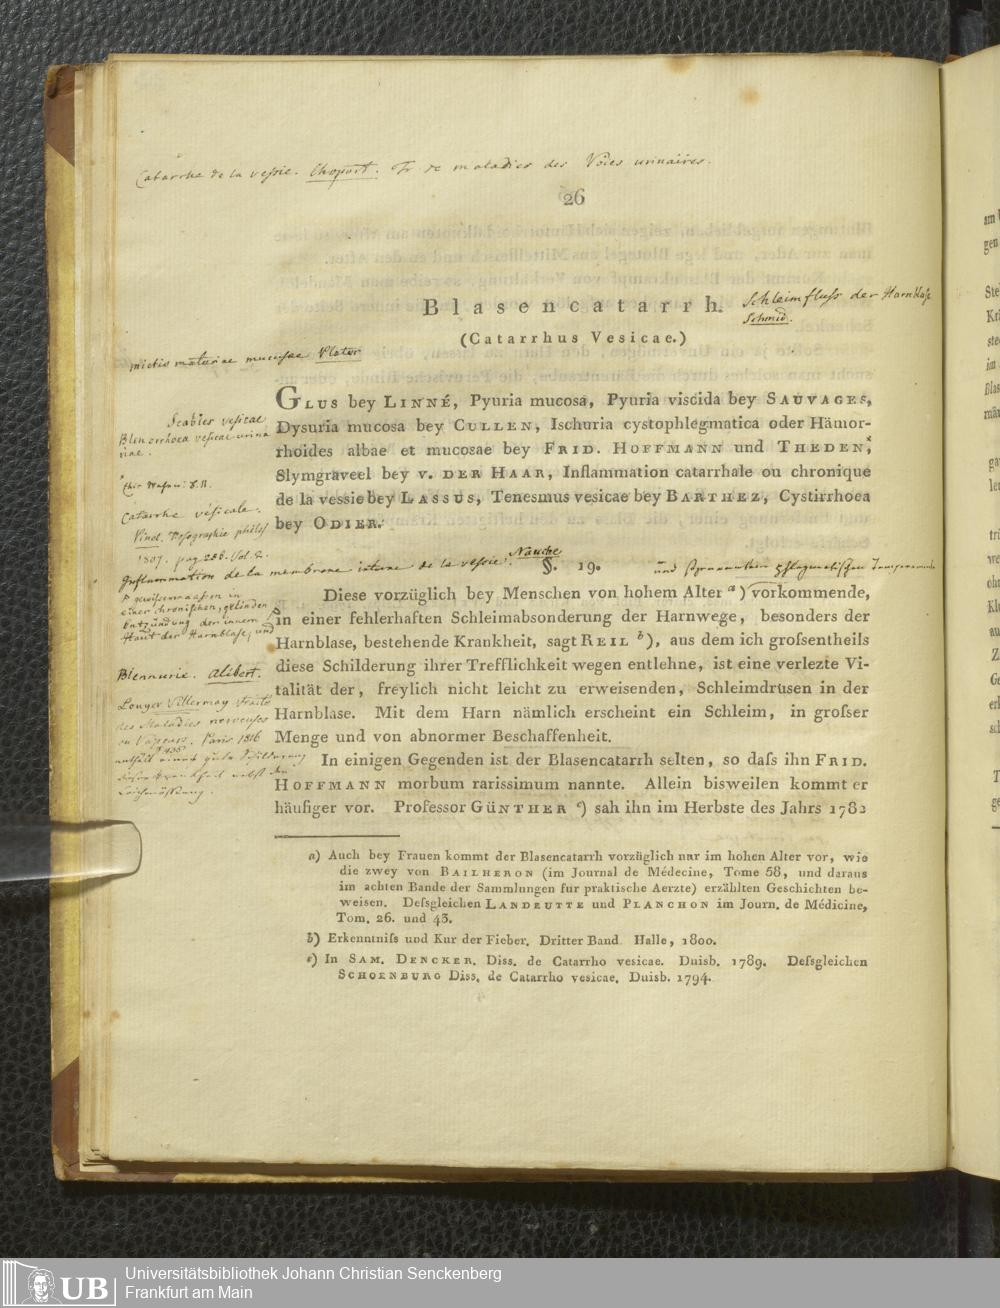 Catarrhe de la vessie. Chopart. Tr de maladies des Voies urinaires.
26
Blasencatarrh.
Schleimfluss der Harnblase
Schmid.
(Catarrhus Vesicae.)
mictio materiae mucosae Plater
GLUS bey LINNÉ, Pyuria mucosa, Pyuria viscida bey SAUVAGES,
Dysuria mucosa bey CULLEN, Ischuria cystophlegmatica oder Hämor-
rhoides albae et mucosae bey FRID. HOFFMANN und THEDEN,
Slymgraveel bey V. DER HAAR, Inflammation catarrhale ou chronique
de la vessie bey LASSUS, Tenesmus vesicae bey BARTHEZ, Cystirrhoea
bey ODIER.
Scabies vesicae
Blenorrhoea vesicae urina
riae.
Catarrhe vésicale.
Pinel. Nosographie philos
1807. pag 288. Vol. 2.
Inflammation de la membrane interne de la vessie. Nauche
§. 19.
und Phlegmatischem Temperamente
Diese vorzüglich bey Menschen von hohem Alter a) vorkommende,
in einer fehlerhaften Schleimabsonderung der Harnwege, besonders der
Harnblase, bestehende Krankheit, sagt REIL b), aus dem ich grofsentheils
diese Schilderung ihrer Trefflichkeit wegen entlehne, ist eine verlezte Vi-
talität der, freylich nicht leicht zu erweisenden, Schleimdrüsen in der
Harnblase. Mit dem Harn nämlich erscheint ein Schleim, in grofser
Menge und von abnormer Beschaffenheit.
In einigen Gegenden ist der Blasencatarrh selten, so dafs ihn FRID.
HOFFMANN morbum rarissimum nannte. Allein bisweilen kommt er
häufiger vor. Professor GÜNTHER c) sah ihn im Herbste des Jahrs 1782
gewissermaassen in
einer chronischen, gelinden
Entzündung der innern
Haut der Harnblase, und
Blennurie. Alibert.
Louyer Villermay Traité
des Maladies nerveuses
ou Vapeurs. Paris 1816
p 435
enthält eine gute Schilderung
dieser Krankheit nebst der
Leichenöffnung.
a) Auch bey Frauen kommt der Blasencatarrh vorzüglich nur im hohen Alter vor, wie
die zwey von BAILHERON (im Journal de Médecine, Tome 58, und daraus
im achten Bande der Sammlungen fur praktische Aerzte) erzählten Geschichten be-
weisen. Defsgleichen LANDEUTTE und PLANCHON im Journ. de Médicine,
Tom. 26. und 43.
b) Erkenntnifs und Kur der Fieber. Dritter Band Halle, 1800.
c) In SAM. DENCKER. Diss. de Catarrho vesicae. Duisb. 1789. Defsgleichen
SCHOENBURG Diss. de Catarrho vesicae, Duisb. 1794.
UB
Universitätsbibliothek Johann Christian Senckenberg
Frankfurt am Main